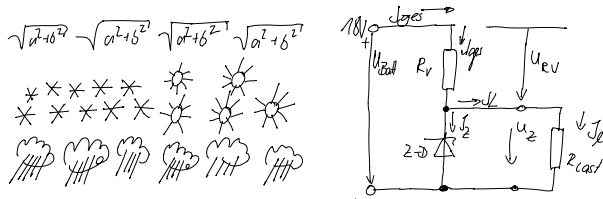 √a²+b² √a²+b² √a²+b² √a²+b²
18V
+
Jges
Jges
UBatt
RV
URV
JL
JZ
Z-D
UZ
Jl
RLast